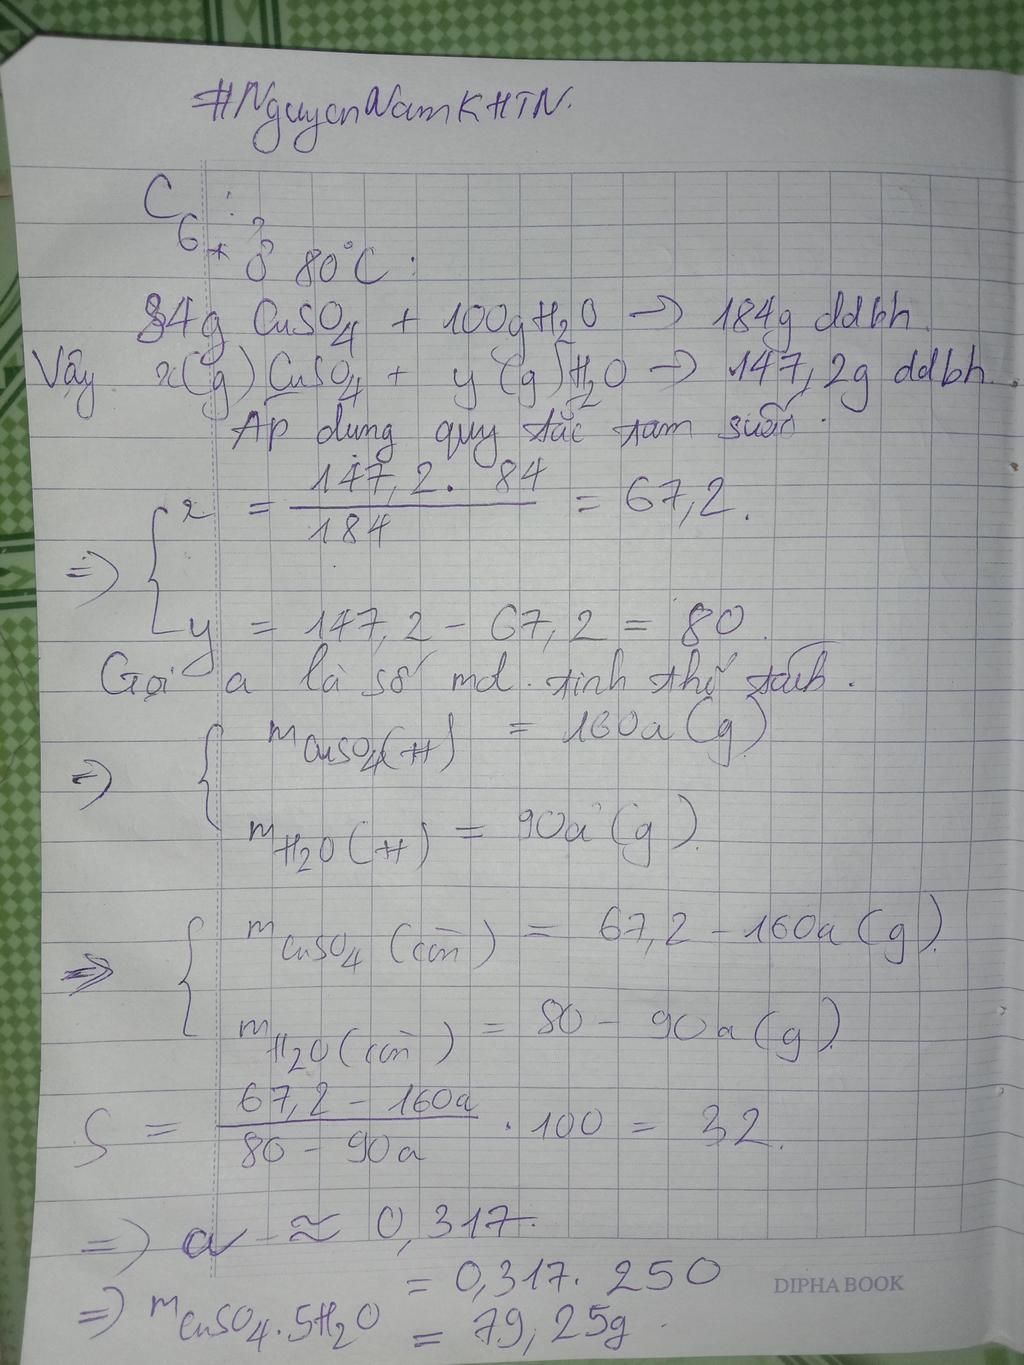 #NguyenNamKHTN.
C6:
* Ở 80°C:
84g CuSO4 + 100gH2O -> 184g ddbh.
Vậy x(g) CuSO4 + y(g)H2O -> 147,2g ddbh.
Áp dụng quy tắc tam suất:
=> { x = 147,2. 84 / 184 = 67,2.
y = 147,2 - 67,2 = 80.
Gọi a là số mol tinh thể tách.
=> { mCuSO4(tt) = 160a (g)
mH2O(tt) = 90a (g).
=> { mCuSO4 (còn) = 67,2 - 160a (g).
mH2O (còn) = 80 - 90a (g).
S = 67,2 - 160a / 80 - 90a . 100 = 32.
=> a ≈ 0,317.
=> mCuSO4.5H2O = 0,317. 250
= 79,25g.
DIPHA BOOK